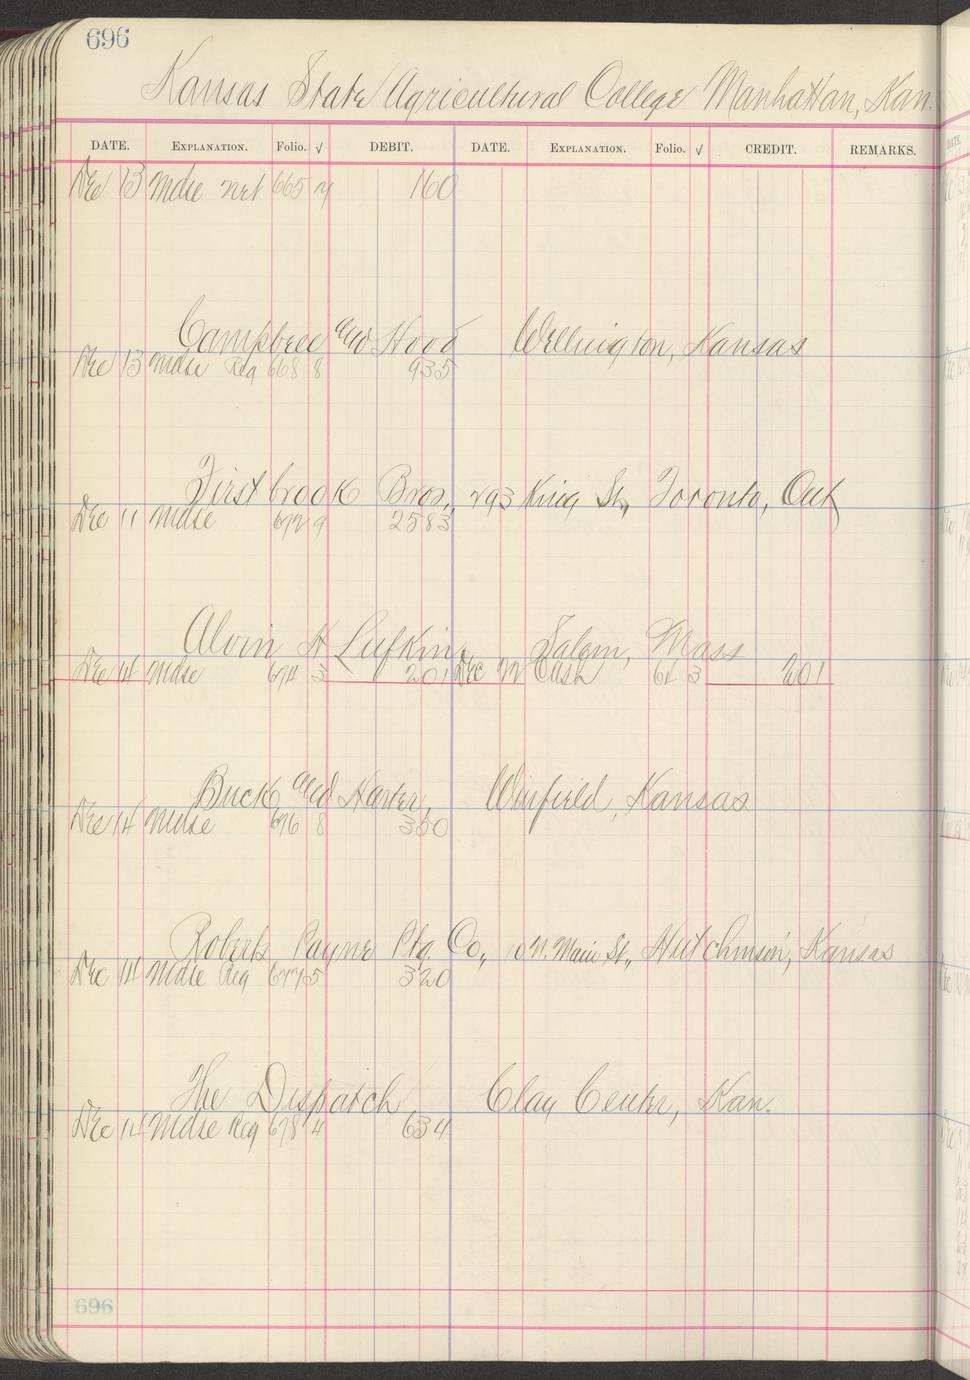 696
Kansas State Agricultural College Manhattan, Kan.
DATE. EXPLANATION. Folio. √ DEBIT. DATE. EXPLANATION. Folio. √ CREDIT. REMARKS.
Dec 13 Mdse net 665 160
Campbell and Hood Wellington, Kansas
Dec 13 Mdse Reg 668 8 935
Firstbrook Bros., 293 King St., Toronto, Ont
Dec 11 Mdse 672 9 2583
Alvin H Lufkin, Salem, Mass
Dec 14 Mdse 674 3 201 Dec 22 Cash 64 3 201
Buck and Harter, Winfield, Kansas
Dec 14 Mdse 676 8 350
Roberts Payne Ptg. Co., 10 N. Main St., Hutchinson, Kansas
Dec 14 Mdse Reg 677 5 320
The Dispatch Clay Center, Kan.
Dec 14 Mdse Reg 678 4 634
696